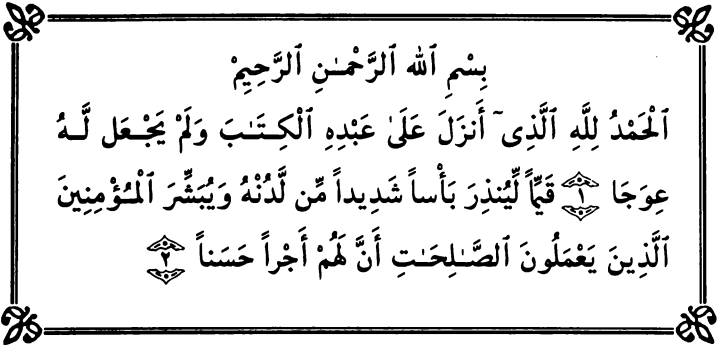 بِسْمِ ٱللهِ ٱلرَّحْمَـٰنِ ٱلرَّحِيمِ
ٱلْحَمْدُ لِلَّهِ ٱلَّذِىٓ أَنزَلَ عَلَىٰ عَبْدِهِ ٱلْكِتَـٰبَ وَلَمْ يَجْعَل لَّهُ
عِوَجَا ١ قَيِّماً لِّيُنذِرَ بَأْساً شَدِيداً مِّن لَّدُنْهُ وَيُبَشِّرَ ٱلْمُؤْمِنِينَ
ٱلَّذِينَ يَعْمَلُونَ ٱلصَّـٰلِحَـٰتِ أَنَّ لَهُمْ أَجْراً حَسَناً ٢